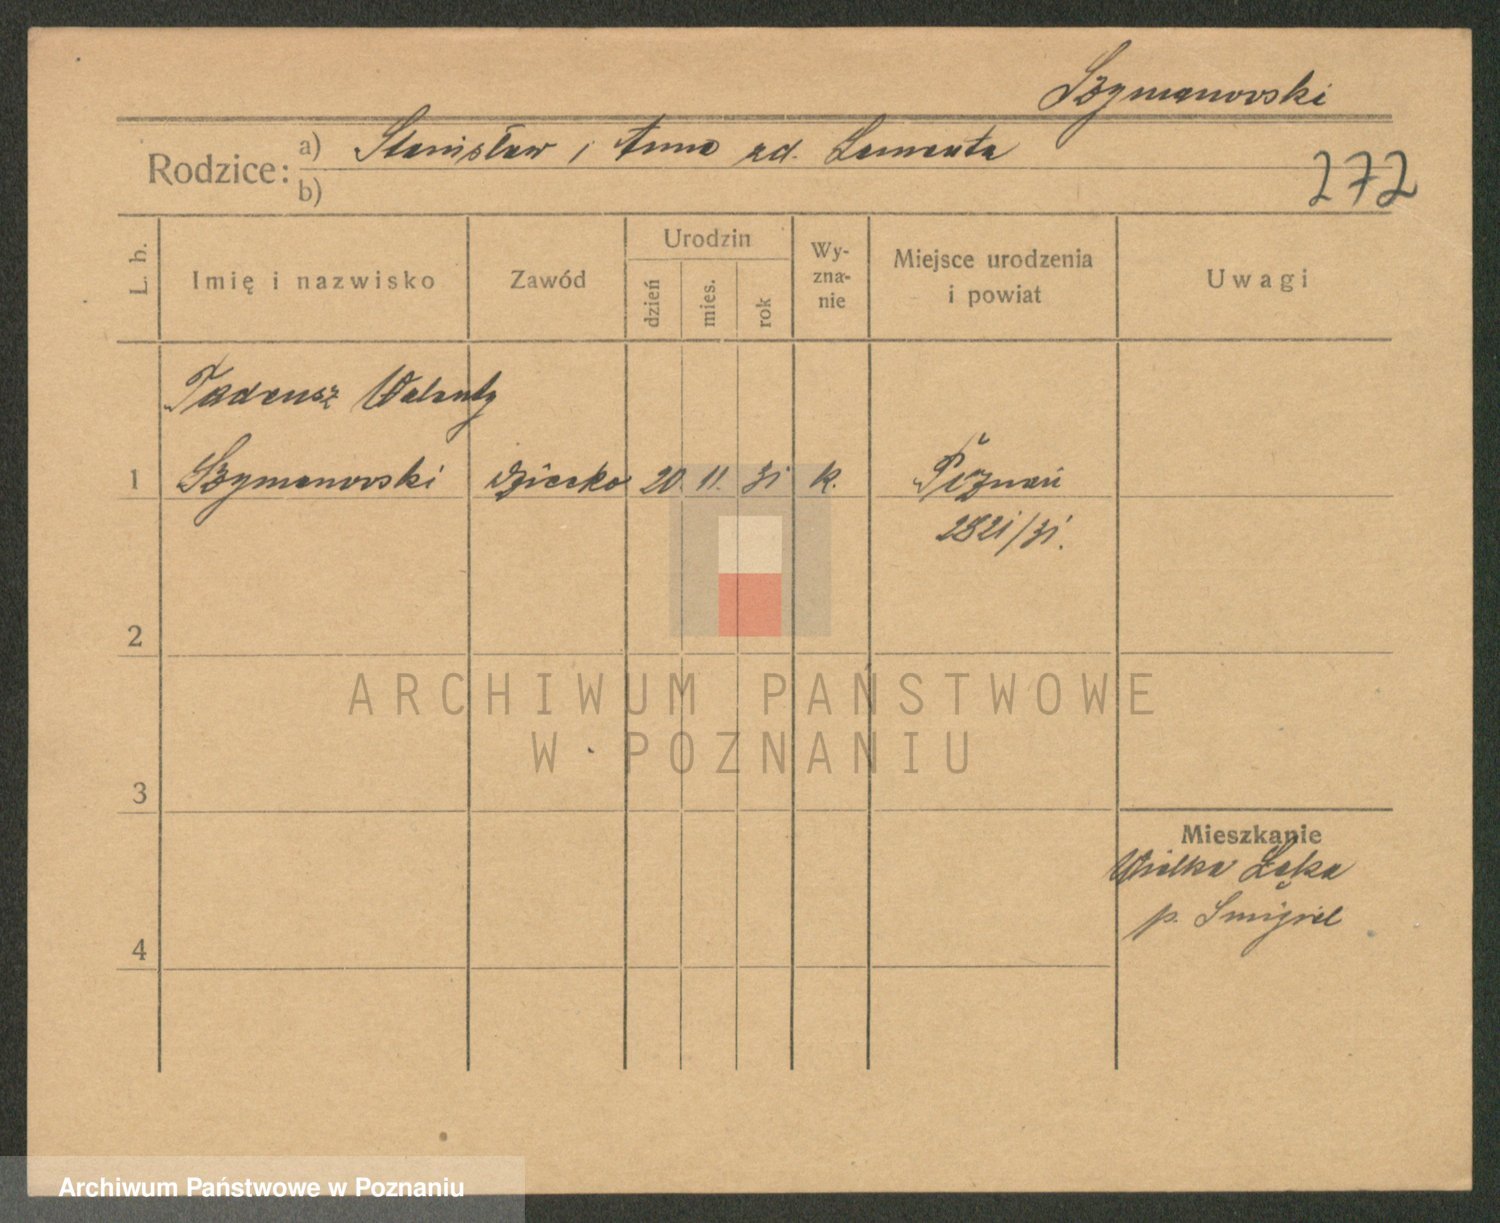 Szymanowski
Rodzice: a) Stanisław i Anna zd. Lamenta
b)
272
L. b.
Imię i nazwisko
Zawód
Urodzin
dzień
mies.
rok
Wy-
zna-
nie
Miejsce urodzenia
i powiat
Uwagi
Tadeusz Walenty
1 Szymanowski dziecko 20. 11. 31 k. Poznań
2821/31.
2
ARCHIWUM PAŃSTWOWE
W POZNANIU
3
Mieszkanie
Wielka Łąka
p. Śmigiel
4
Archiwum Państwowe w Poznaniu